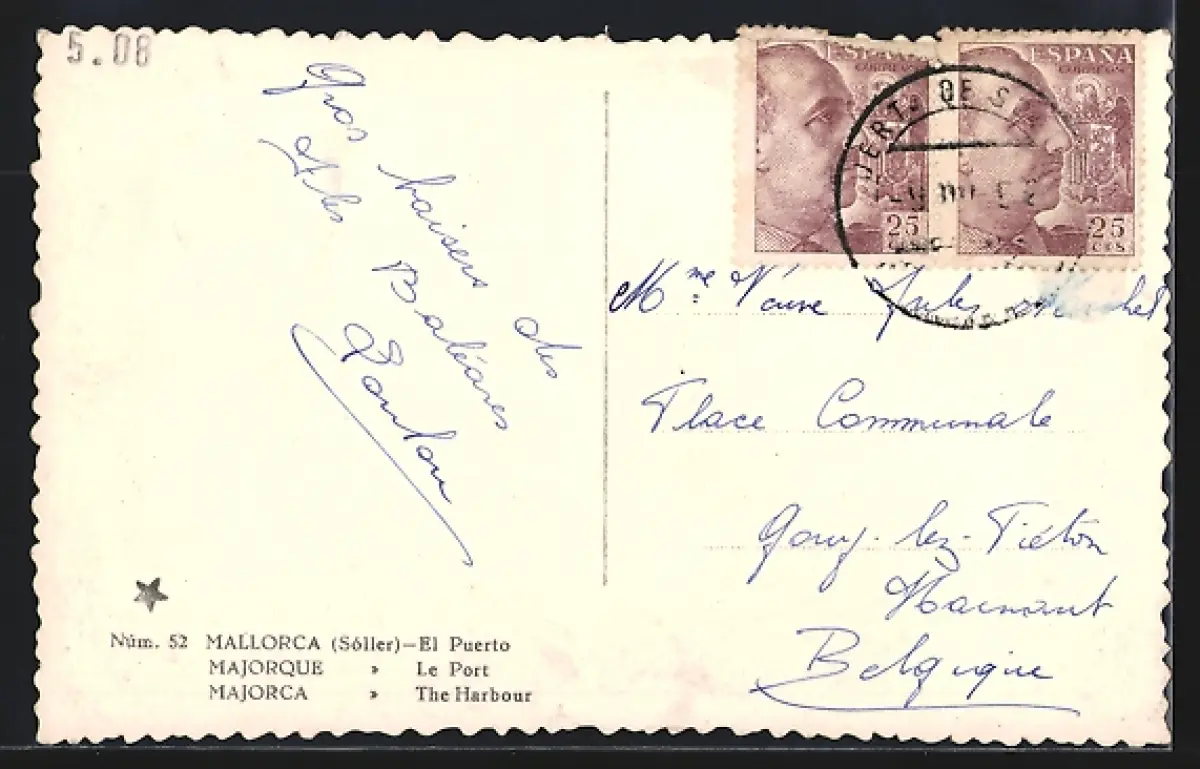 5.00
Gros baisers des
Iles Baléares
ESPAÑA
CORREOS
25
CTS
ESPAÑA
CORREOS
25
CTS
Mme Veuve Jules
Place Communale
Gouy-lez-Piéton
Hainaut
Belgique
Núm. 52 MALLORCA (Sóller)—El Puerto
MAJORQUE » Le Port
MAJORCA » The Harbour